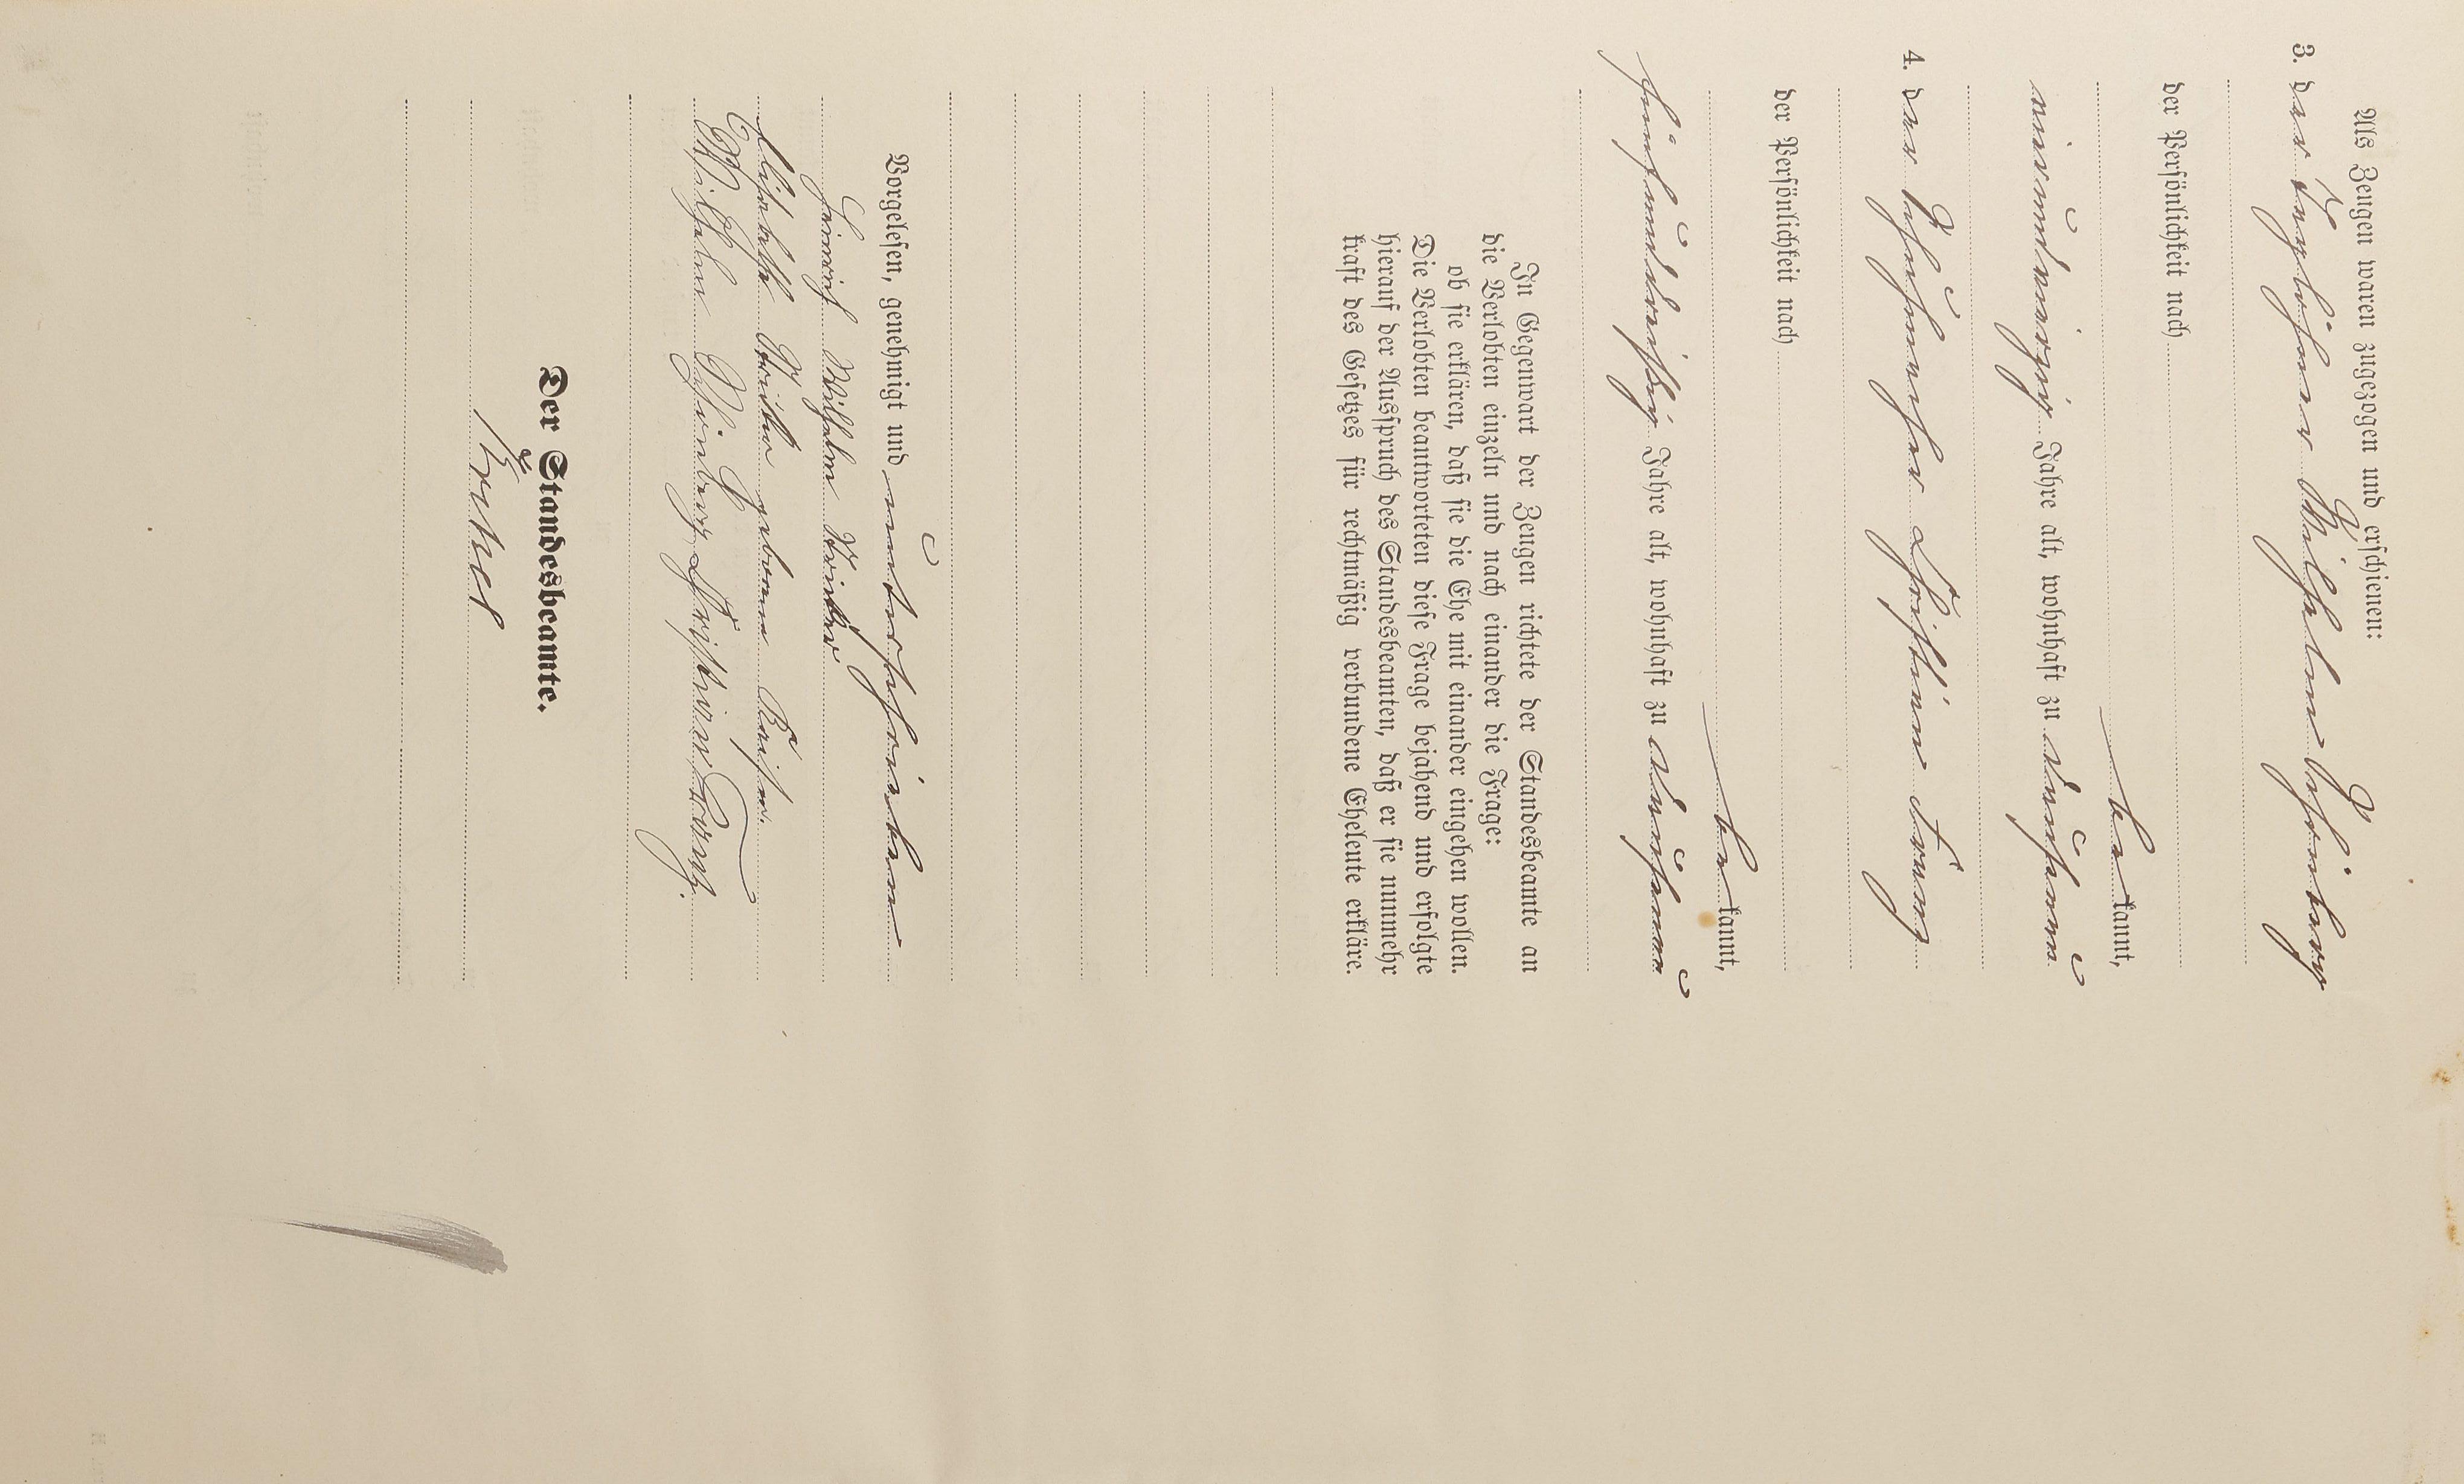 Als Zeugen waren zugezogen und erschienen:
3. der Taglöhner Wilhelm
der Persönlichkeit nach
bekannt,
Jahre alt, wohnhaft zu
4. der Schuhmacher Christian
der Persönlichkeit nach
bekannt,
fünfunddreißig Jahre alt, wohnhaft zu
In Gegenwart der Zeugen richtete der Standesbeamte an
die Verlobten einzeln und nach einander die Frage:
ob sie erklären, daß sie die Ehe mit einander eingehen wollen.
Die Verlobten beantworteten diese Frage bejahend und erfolgte
hierauf der Ausspruch des Standesbeamten, daß er sie nunmehr
kraft des Gesetzes für rechtmäßig verbundene Eheleute erkläre.
Vorgelesen, genehmigt und unterschrieben
Heinrich Wilhelm
Elisabetha geborene
Wilhelm Christian
Der Standesbeamte.